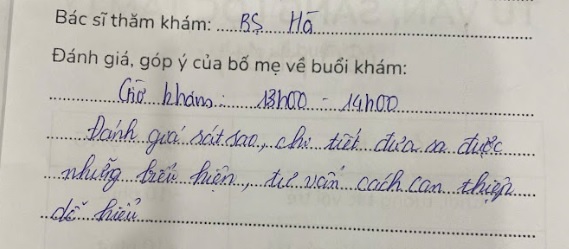 Bác sĩ thăm khám: BS Hà
Đánh giá, góp ý của bố mẹ về buổi khám:
Giờ khám: 13h00 - 14h00
Đánh giá sát sao, chi tiết đưa ra được
những biểu hiện, tư vấn cách can thiệp
dễ hiểu